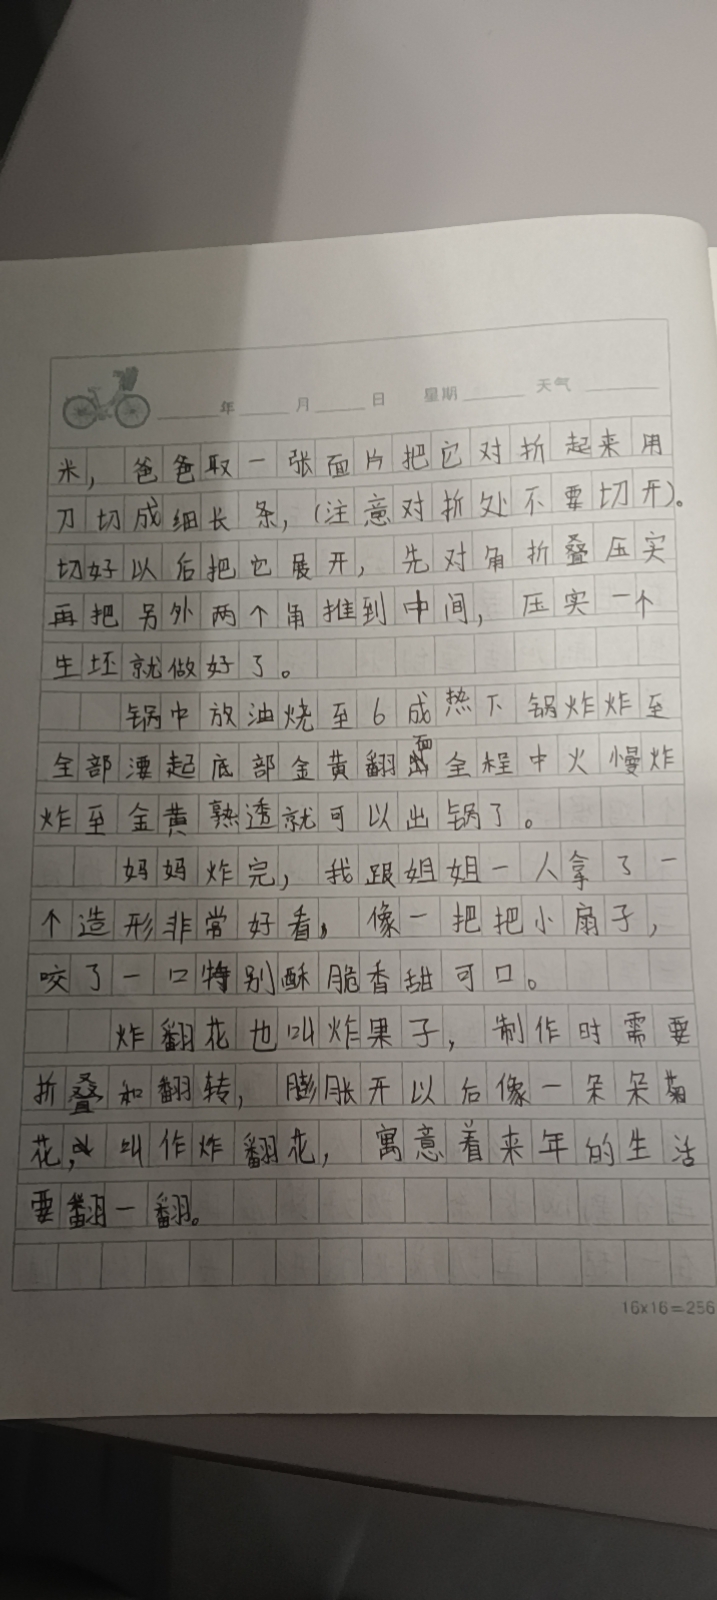 年 月 日 星期 天气
米，爸爸取一张面片把它对折起来用
刀切成细长条，（注意对折处不要切开）。
切好以后把它展开，先对角折叠压实
再把另外两个角推到中间，压实一个
生坯就做好了。
锅中放油烧至6成热下锅炸炸至
全部漂起底部金黄翻面全程中火慢炸
炸至金黄熟透就可以出锅了。
妈妈炸完，我跟姐姐一人拿了一
个造形非常好看，像一把把小扇子，
咬了一口特别酥脆香甜可口。
炸翻花也叫炸果子，制作时需要
折叠和翻转，膨胀开以后像一朵朵菊
花，叫作炸翻花，寓意着来年的生活
要翻一翻。
16x16=256